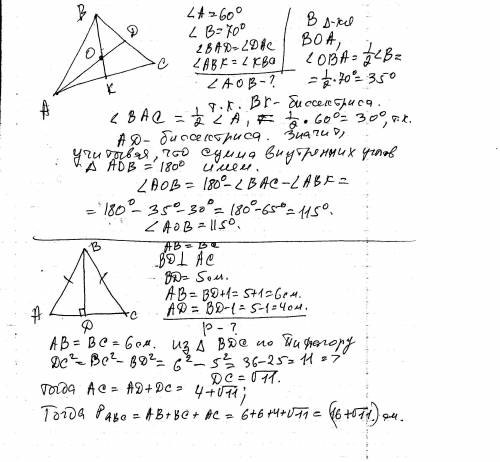 B
D
O
C
K
A
∠A=60°
∠B=70°
∠BAD=∠DAC
∠ABK=∠KBC
∠AOB-?
В Δ-ке
BOA,
∠OBA=½∠B=
=½·70°=35°
т.к. BK-биссектриса.
∠BAC=½∠A, = ½·60°=30°, т.к.
AD-биссектриса. Значит,
учитывая, что сумма внутренних углов
Δ AOB=180° имеем.
∠AOB=180°-∠BAC-∠ABK=
=180°-35°-30°=180°-65°=115°.
∠AOB=115°.
B
A
D
C
AB=BC
BD⊥AC
BD=5см.
AB=BD+1=5+1=6см.
AD=BD-1=5-1=4см.
P-?
AB=BC=6см. из Δ BDC по Пифагору
DC²=BC²-BD²=6²-5²=36-25=11=>
DC=√11.
Тогда AC=AD+DC=4+√11;
Тогда P ABC=AB+BC+AC=6+6+4+√11=(16+√11)см.